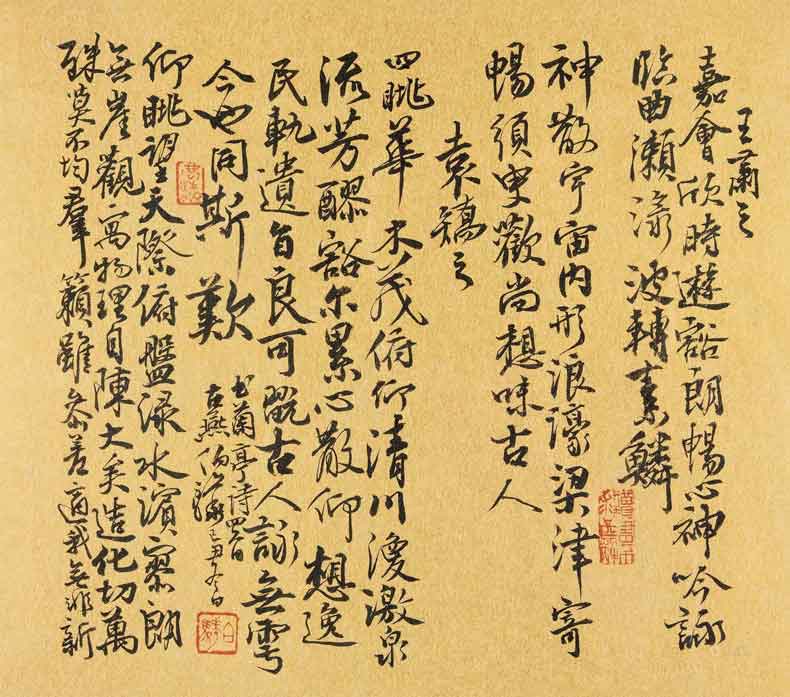 王蕭之
嘉會欣時遊豁朗暢心神吟詠
臨曲瀨淥波轉素鱗
神散宇宙內形浪濠梁津寄
暢須臾歡尚想味古人
袁嶠之
四眺華木茂俯仰清川渙激泉
流芳醪豁尔累心散仰想逸
民軌遺旨良可翫古人詠無雩
今也同斯歎
书蘭亭诗四首
古燕伯 己丑冬日
仰眺望天際俯盤渌水濱寥朗
無崖觀寓物理自陳大矣造化功萬
殊莫不均羣籟雖參差適我無非新